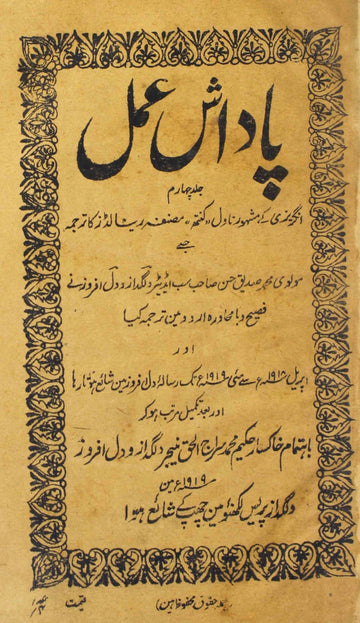 پاداش عمل
جلد چہارم
انگریزی کے مشہور ناول "کنتھ" مصنفہ رینالڈز کا ترجمہ
جسے
مولوی محمد صدیق حسن صاحب سب ایڈیٹر دلگداز و دل افروز نے
فصیح و بامحاورہ اردو مین ترجمہ کیا
اور
اپریل ۱۹۱۸ء سے مئی ۱۹۱۹ء تک رسالۂ دل افروز مین شائع ہوتا رہا
اور بعد تکمیل مرتب ہو کر
باہتمام خاکسار حکیم محمد سراج الحق منیجر دلگداز و دل افروز
۱۹۱۹ء مین
دلگداز پریس لکھنؤ مین چھپ کے شائع ہوا
حقوق محفوظ ہین
قیمت